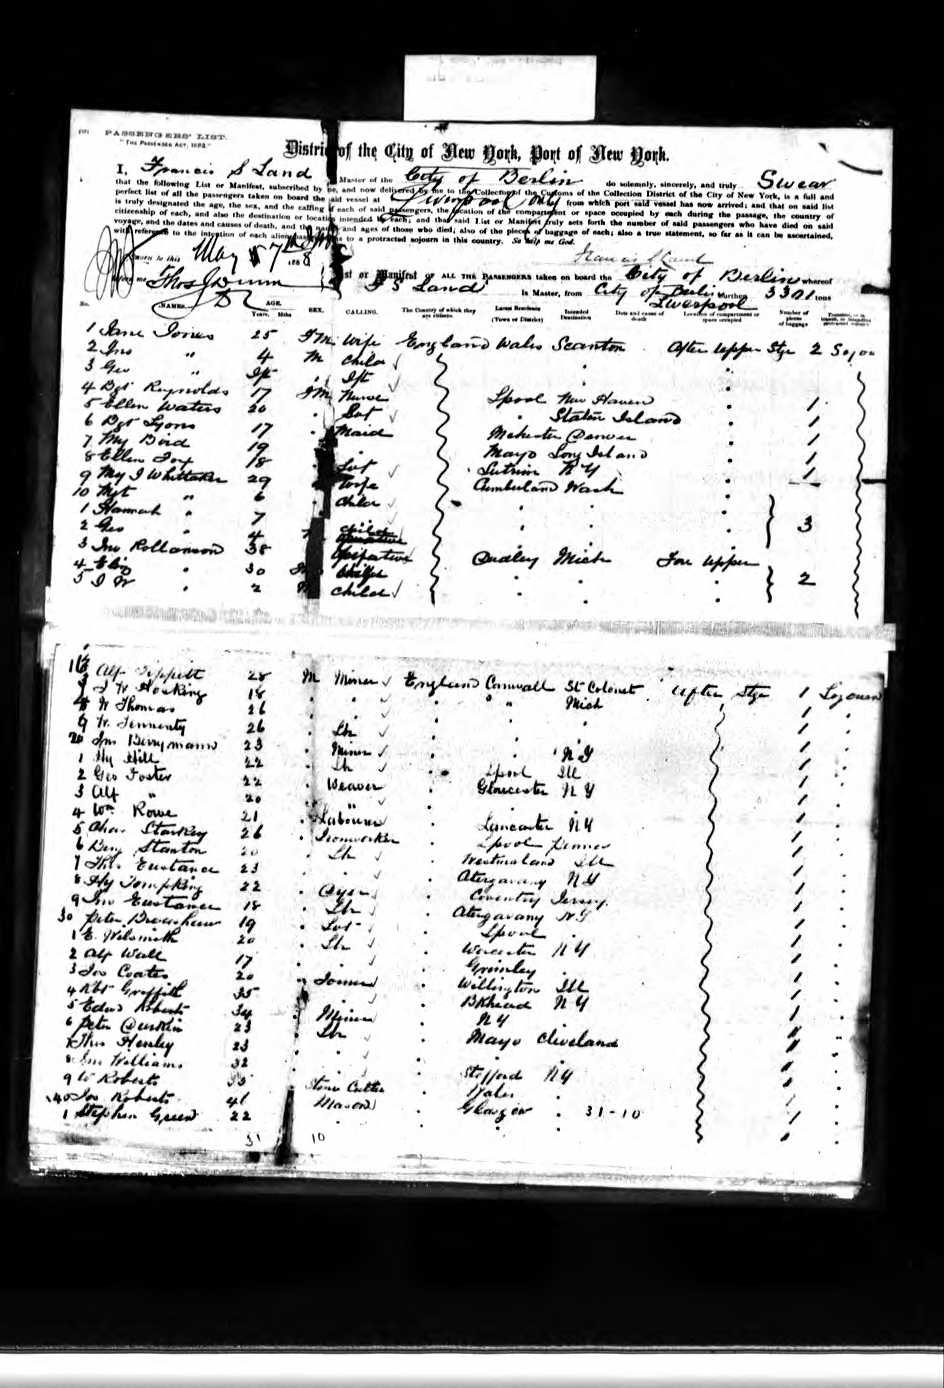 PASSENGERS' LIST.
"The Passenger Act, 1882."
District of the City of New York, Port of New York.
I, Francis S Land Master of the City of Berlin do solemnly, sincerely, and truly Swear
that the following List or Manifest, subscribed by me, and now delivered by me to the Collector of the Customs of the Collection District of the City of New York, is a full and
perfect list of all the passengers taken on board the said vessel at Liverpool only from which port said vessel has now arrived; and that on said list
is truly designated the age, the sex, and the calling of each of said passengers, the location of the compartment or space occupied by each during the passage, the country of
citizenship of each, and also the destination or location intended by each; and that said List or Manifest truly sets forth the number of said passengers who have died on said
voyage, and the dates and causes of death, and the names and ages of those who died; also of the pieces of baggage of each; also a true statement, so far as it can be ascertained,
with reference to the intention of each alien passenger as to a protracted sojourn in this country. So help me God.
Sworn to this May 7 1888 Francis S Land
before me Thos J Dunn
List or Manifest OF ALL THE PASSENGERS taken on board the City of Berlin whereof
F S Land is Master, from City of Berlin Liverpool burthen 3301 tons
No. NAMES. AGE. Years. Mths SEX. CALLING. The Country of which they are citizens. Intended Destination Date and causes of death Location of compartment or space occupied Number of pieces of baggage
1 Jane Jones 25 Wife England Wales Scanton After Upper Stge 2
2 Jno " 4 M Child
3 Geo " Ift
4 Bgt Reynolds 17 Nurse Lpool New Haven 1
5 Ellen Waters 20 Svt Staten Island 1
6 Bgt Lyons 17 Maid Denver 1
7 My Bird 19 Mayo Long Island 1
8 Ellen Fox 18 Svt N Y 1
9 My J Whittaker 29 Wife Cumberland Wash
10 Mgt " 6 Child
1 Hannah " 7 3
2 Geo " 4 Child
3 Jno Rollanson 38 Dudley Mich Fore Upper
4 Eliz " 30 2
5 J W " 2 Child
Alf Tippett 28 M Miner England Cornwall St Colonet After Stge 1
J W Hosking 18 " " Mich 1
W Thomas 26 1
26 Lbr 1
20 Jno Berrymann 23 Miner N Y 1
1 Hy Hill 22 Lbr Lpool Ill 1
2 Geo Foster 22 Weaver Gloucester N Y 1
3 Alf " 20 " 1
4 Wm Rowe 21 Labourer Lancaster N Y 1
5 Chas Starkey 26 Ironworker Lpool 1
6 Benj Stanton 20 Lbr Westmorland Ill 1
7 Thos Eustance 23 N Y 1
8 Hy Tompking 22 Dyer Coventry Jersey 1
9 Jno Eustance 18 Lbr N Y 1
30 Peter 19 Svt Lpool 1
1 E. 20 Lbr Worcester N Y 1
2 Alf Wall 17 Grimley 1
3 Jos Coates 20 Joiner Willington Ill 1
4 Rbt Griffith 35 Bkhead N Y 1
5 Edwd Roberts 34 Miner N Y 1
6 Peter 23 Lbr Mayo Cleveland "
7 Thos Henley 23 "
8 Jno Williams 32 Stafford N Y
9 W Roberts 33 Stone Cutter Wales
40 Jos Roberts 41 Mason Glasgow 31-10 1
1 Stephen Green 22
31 10